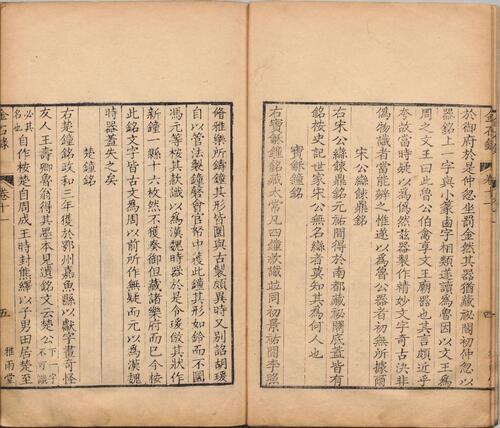 金石錄 卷十一
四
和御府於是仲忽坐罰金然其器猶藏祕閣初仲忽以
器銘上一字與小篆鹵字相類遂讀爲魯因以文王爲
周之文王曰此魯公伯禽享文王廟器也其言頗近乎
夸故當時疑以爲僞然茲器製作精妙文字奇古決非
僞物識者當能辨之惟遂以爲魯公器者初無所據爾
宋公䜌餗鼎銘
右宋公䜌餗鼎銘元祐閒得於南都藏祕閣底蓋皆有
銘按史記世家宋公無名䜌者莫知其爲何人也
寶龢鐘銘
右寶龢鐘銘藏太常凡四鐘款識並同初景祐閒李照
脩雅樂所鑄鐘其形皆圓與古製頗異時又別詔胡瑗
自以管法製鐘磬會官帑中獲此鐘其形如鈴而不圓
馮元等按其款識以爲漢魏時器於是令瑗倣其狀作
新鐘一縣十六枚然不獲奏御但藏諸樂府而已今按
此銘文字皆古文爲周以前所作無疑而元以爲漢魏
時器蓋失之矣
楚鐘銘
右楚鐘銘政和三年獲於鄂州嘉魚縣以獻字畫奇怪
友人王壽卿魯翁得其墨本見遺銘文云楚公下一字不可識
必其名也其自作按楚自周成王時封熊繹以子男田居楚至
金石錄 卷十一
五 雅雨堂